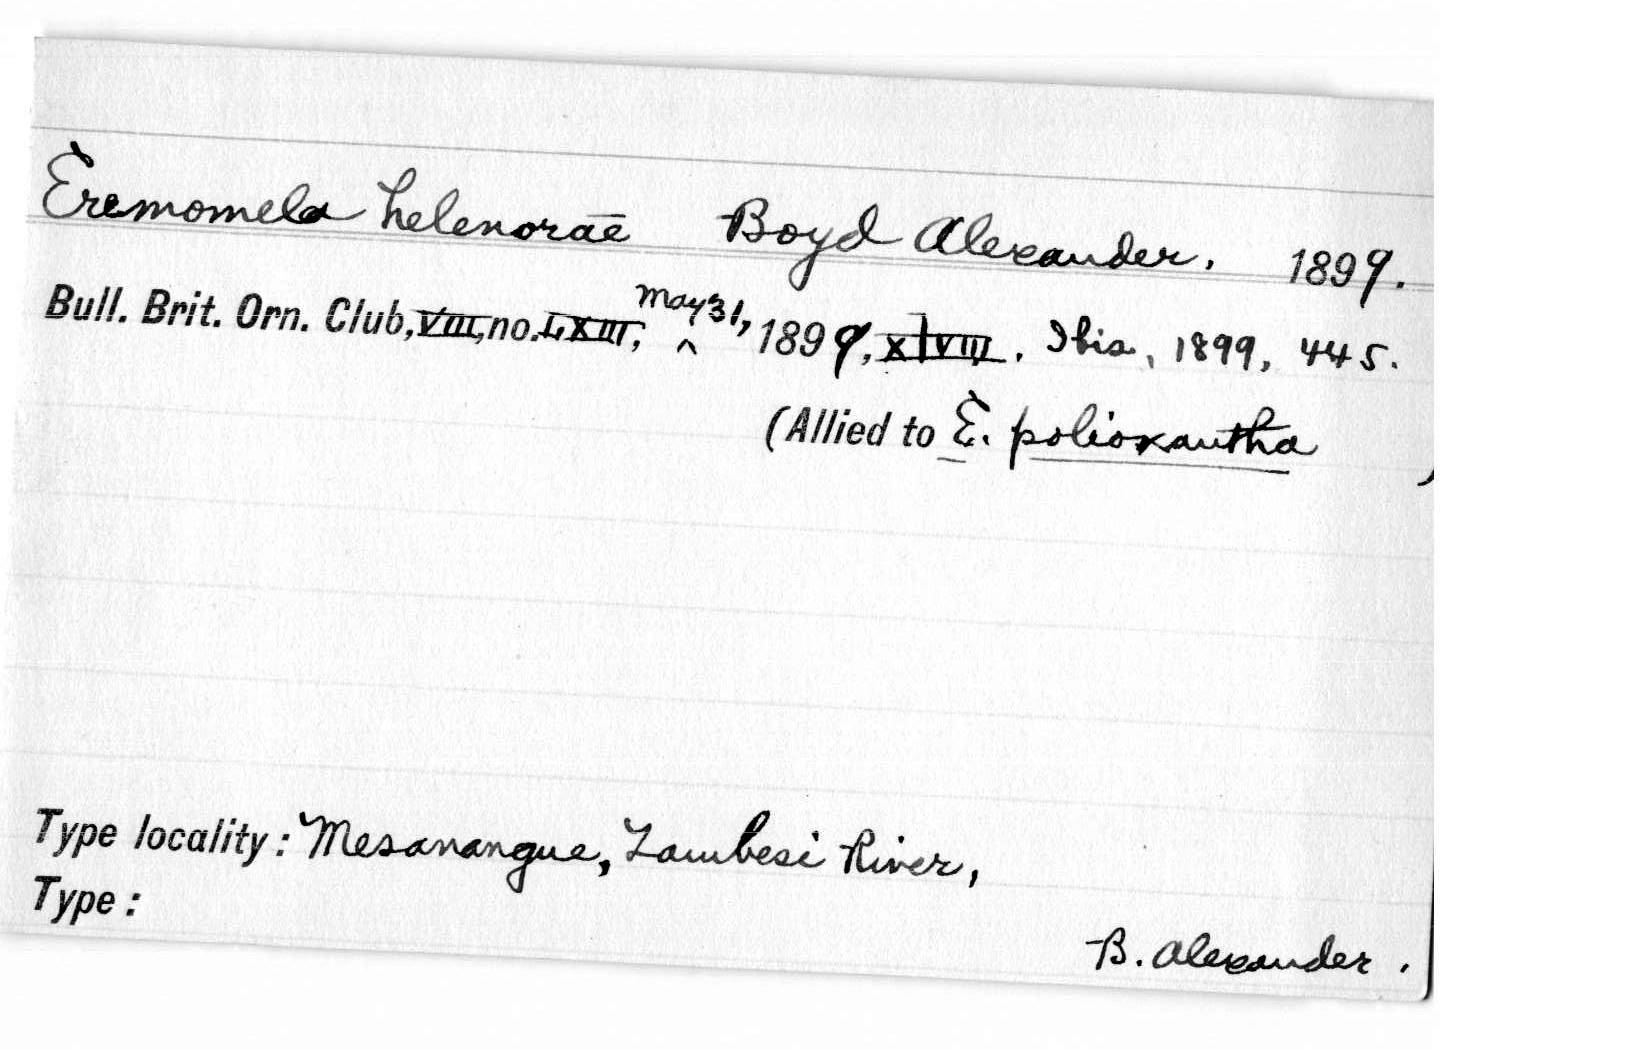 Eremomela helenorae Boyd Alexander. 1899.
Bull. Brit. Orn. Club, VIII, no. LXIII, May 31, 1899, xlviii. Ibis, 1899, 445.
(Allied to E. polioxantha )
Type locality: Mesanangue, Zambesi River,
Type:
B. Alexander.